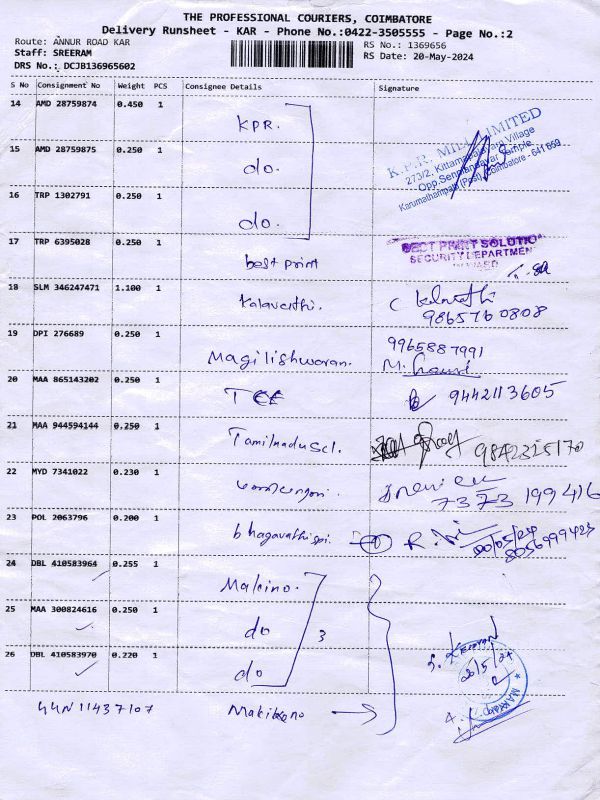 THE PROFESSIONAL COURIERS, COIMBATORE
Delivery Runsheet - KAR - Phone No.:0422-3505555 - Page No.:2
Route: ANNUR ROAD KAR
RS No.: 1369656
Staff: SREERAM
RS Date: 20-May-2024
DRS No.: DCJB136965602
S No Consignment No Weight PCS Consignee Details Signature
14 AMD 28759874 0.450 1
KPR.
K.P.R. MILL LIMITED
273/2, Kittampalayam Village
Karumathampatti (Post), Coimbatore - 641 659
15 AMD 28759875 0.250 1
do.
16 TRP 1302791 0.250 1
do.
17 TRP 6395028 0.250 1
best print
BEST PRINT SOLUTIO
SECURITY DEPARTMEN
18 SLM 346247471 1.100 1
Kalavathi.
9865760808
19 DPI 276689 0.250 1
Magilishwaran.
9965887991
20 MAA 865143202 0.250 1
9442113605
21 MAA 944594144 0.250 1
Tamilnadu Scl.
9842325170
22 MYD 7341022 0.230 1
7373 199416
23 POL 2063796 0.200 1
R.
20/05/24
8056999423
24 DBL 410583964 0.255 1
Makino.
25 MAA 300824616 0.250 1
do
3
26 DBL 410583970 0.220 1
do
20/5/24
11437107